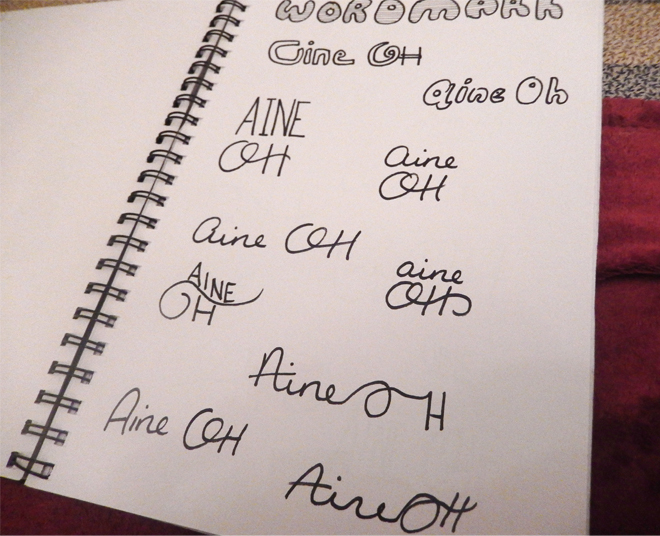 WORDMARK
aine OH
aine Oh
AINE
OH
aine
OH
aine OH
AINE
OH
aine
OH
Aine OH
Aine OH
Aine OH